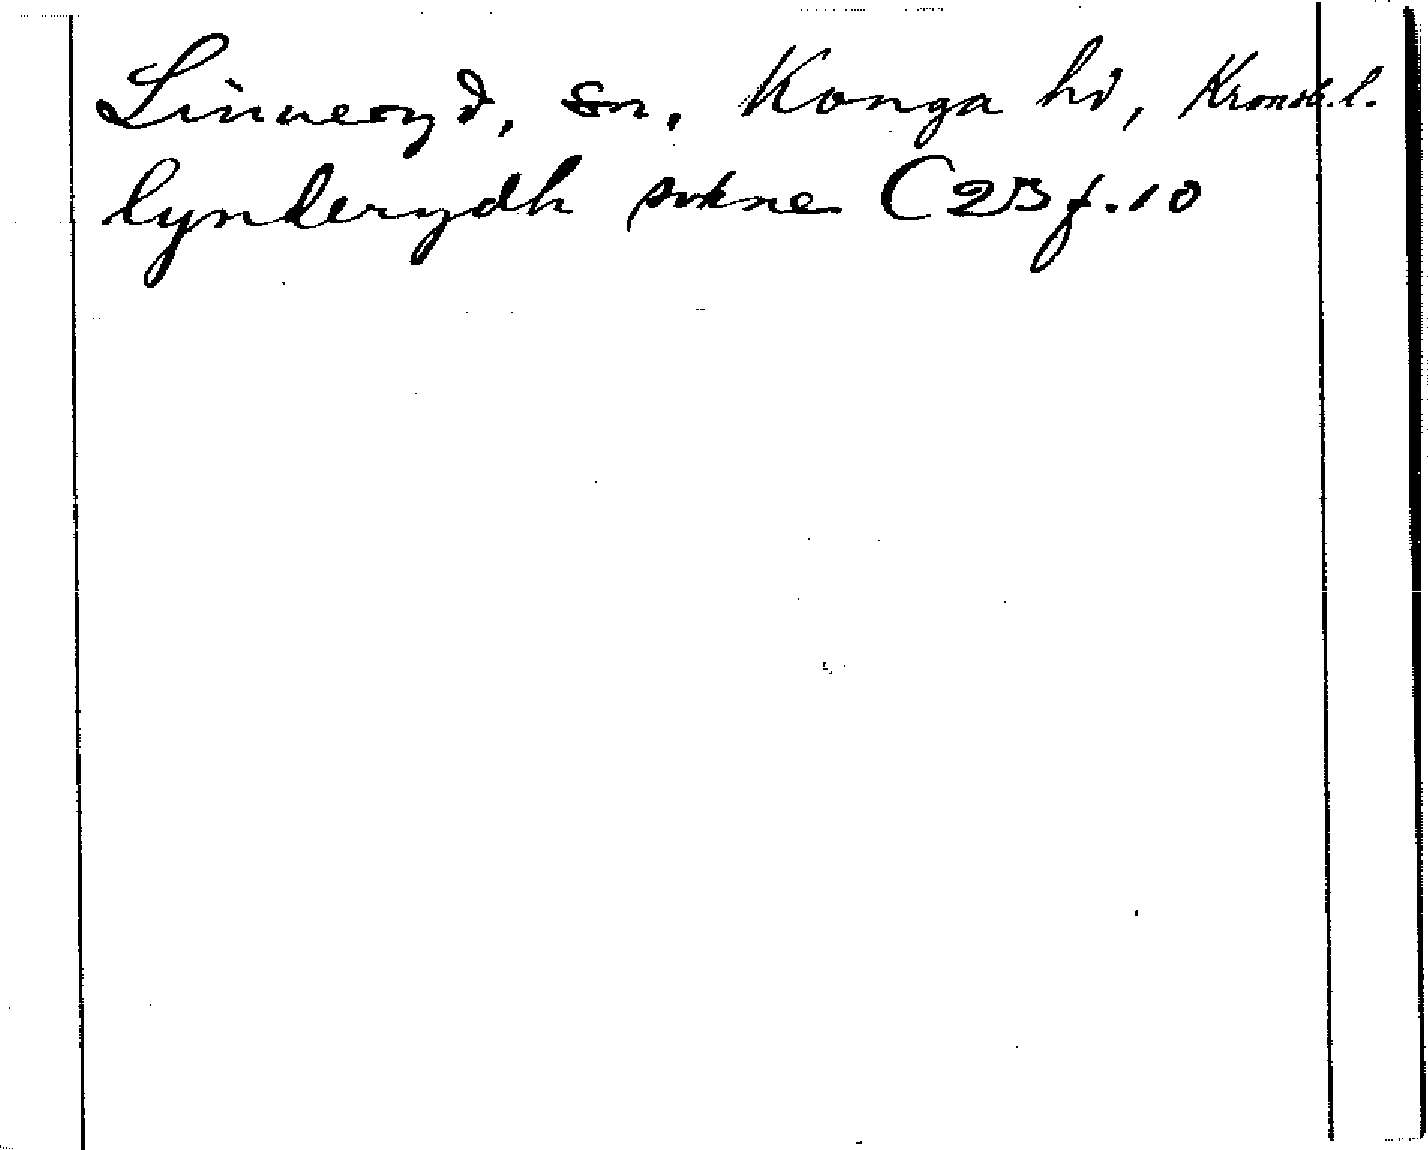 Linneryd, sn, Konga hd, Kronob.l.
lynderydh sokne C2B f.10